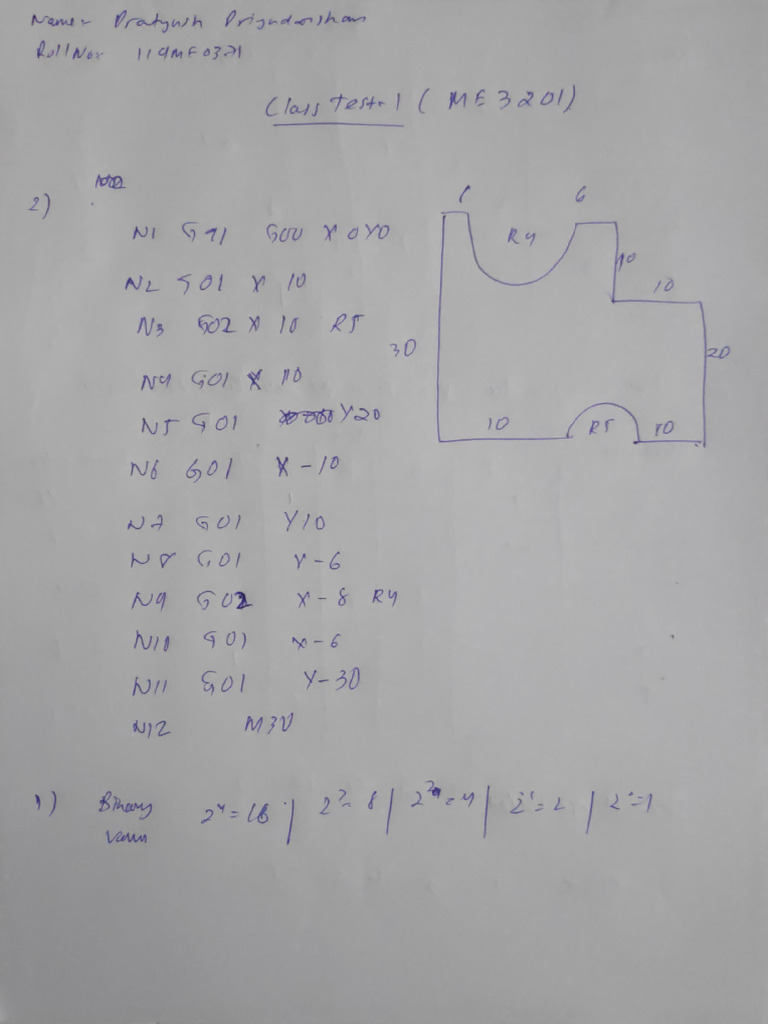 Name- Pratyush Priyadarshan
Roll No- 119ME0371
Class Test-1 ( ME3201)
2)
N1 G91 G00 X0Y0
N2 G01 X 10
N3 G02 X 10 R5
N4 G01 X 10
N5 G01 Y20
N6 G01 X-10
N7 G01 Y10
N8 G01 X-6
N9 G02 X-8 R4
N10 G01 X-6
N11 G01 Y-30
N12 M30
6 6
R4
10
10
30
20
10 R5 10
1) Binary 2⁴=16 | 2³=8 | 2²=4 | 2¹=2 | 2⁰=1